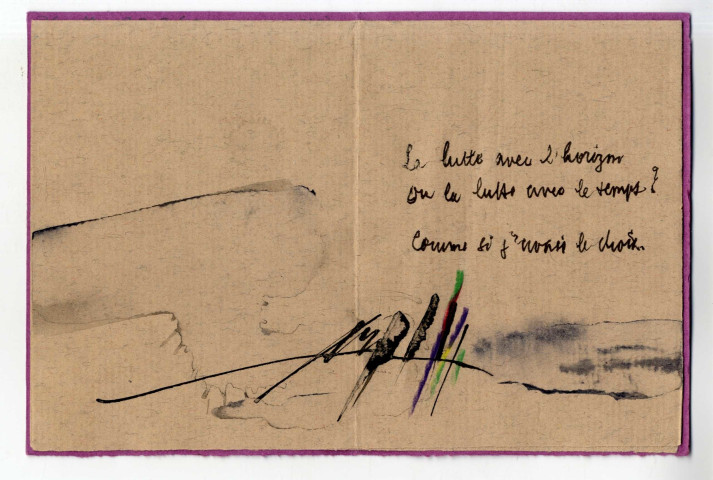 La lutte avec l'horizon
ou la lutte avec le temps ?
Comme si j'avais le choix.